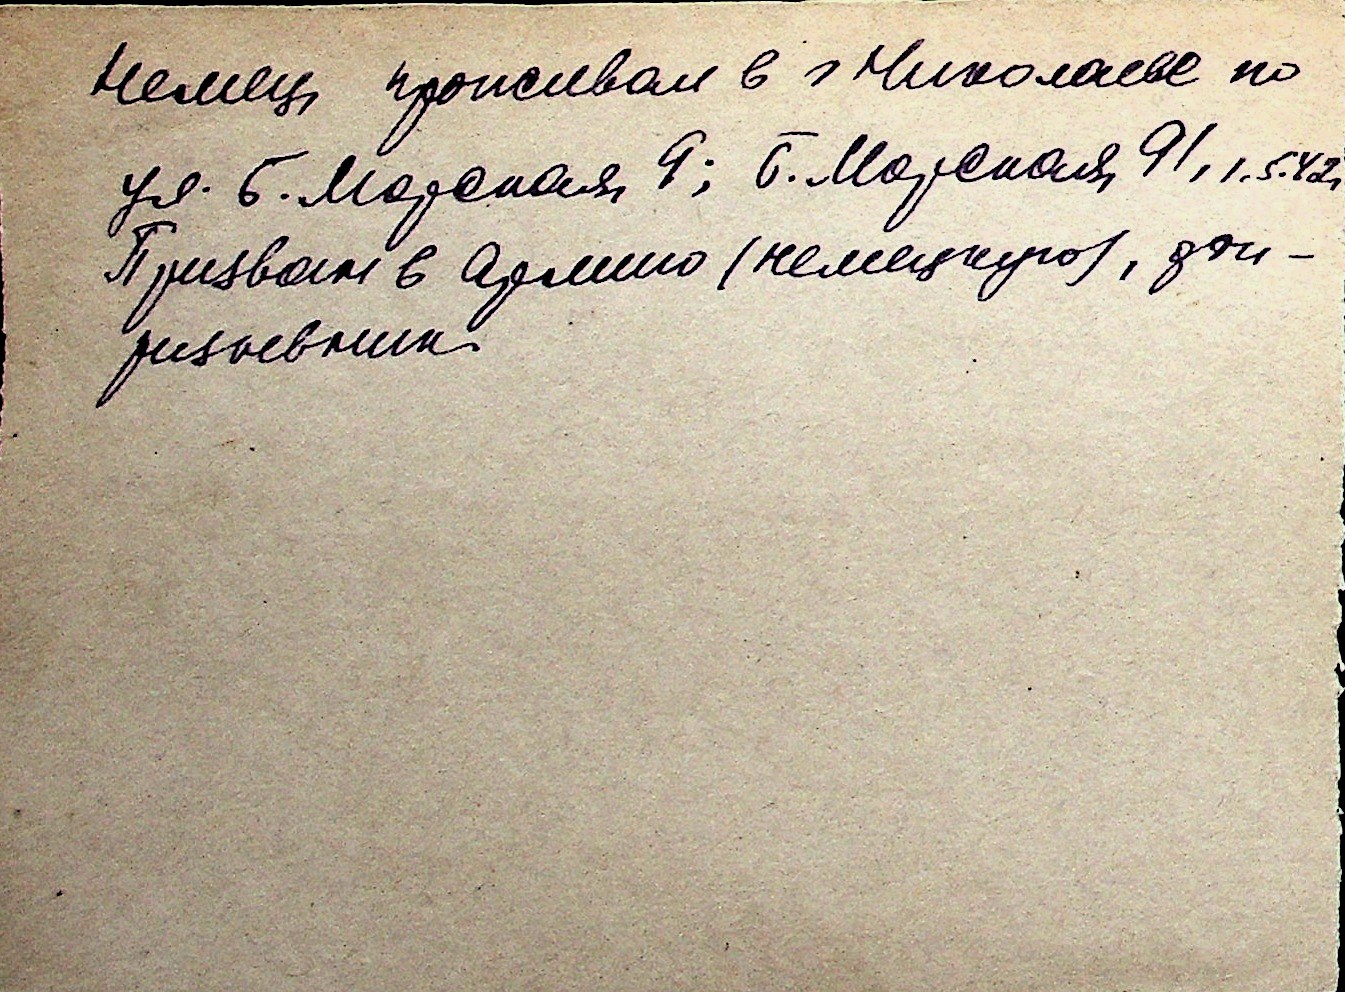 Немец, проживал в г Николаеве по
ул. Б. Морская, 9; Б. Морская, 91, 1.5.42,
Призван в Армию (немецкую), до